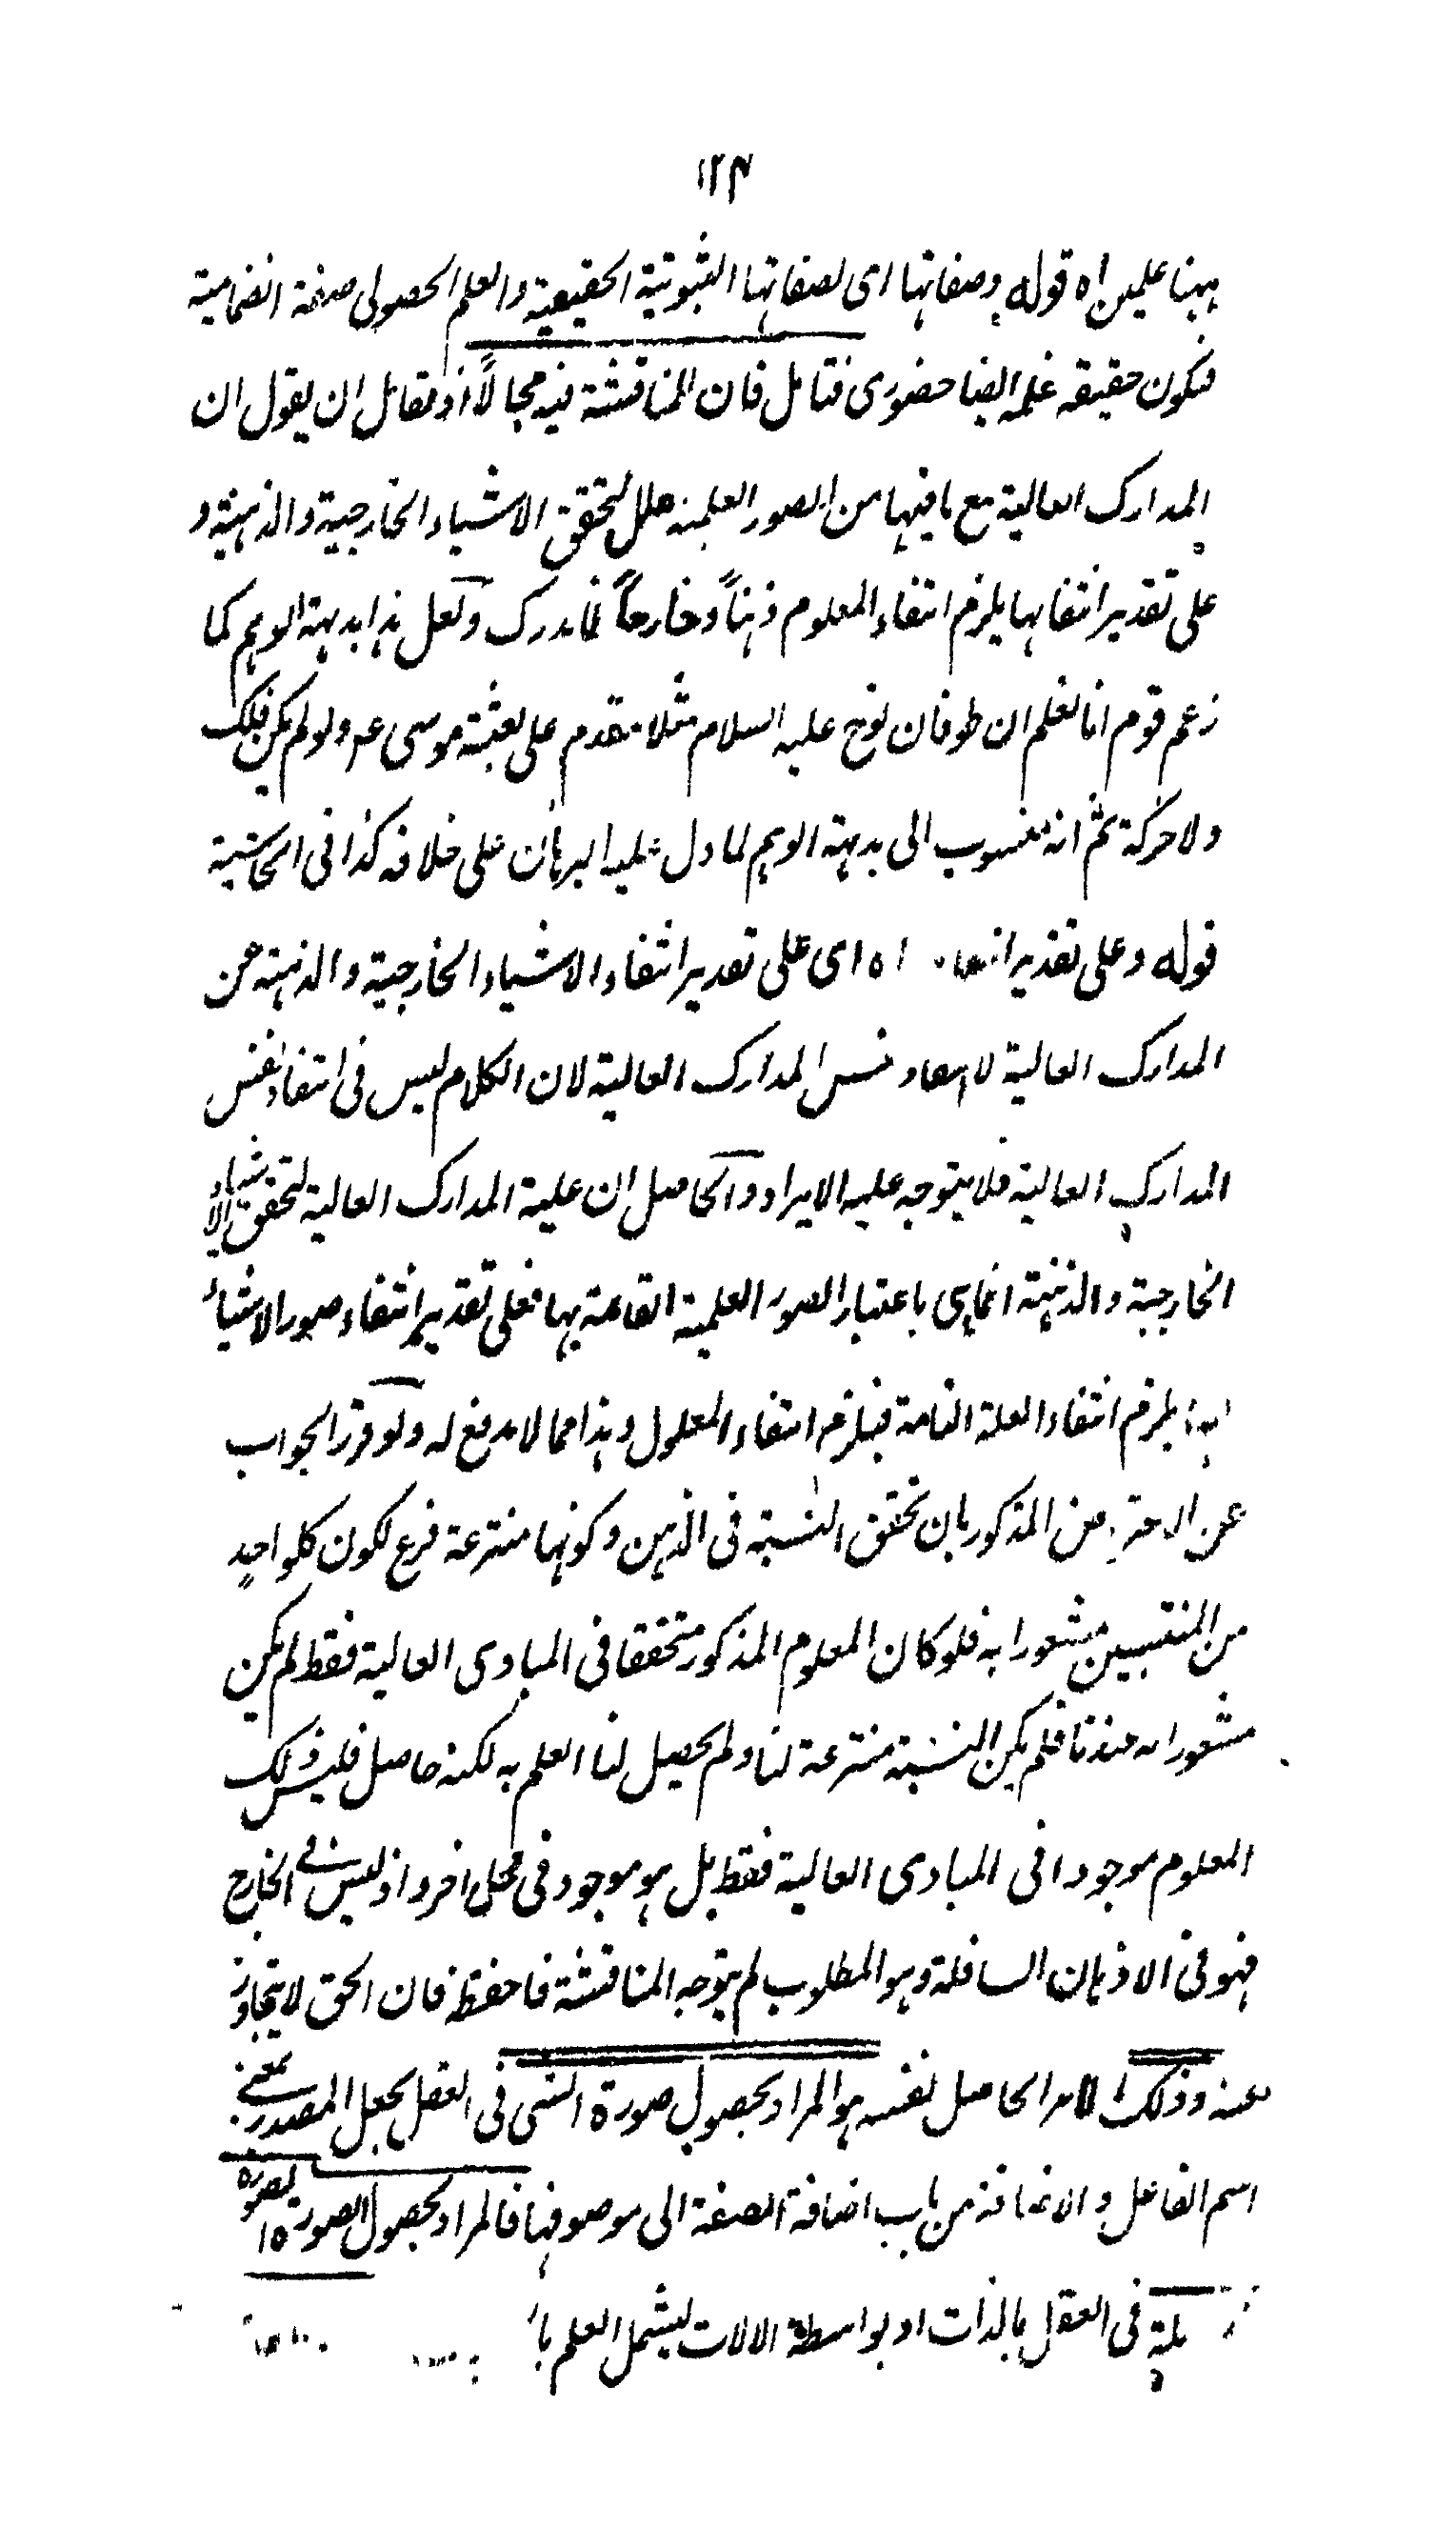 ١٢٣
ههنا علمين اه قوله وصفاتها اى لصفاتها الثبوتية الحقيقية والعلم الحصولى صفة انضمامية
فيكون حقيقة علمه ايضا حضورى فتامل فان المناقشة فيه مجالاً اذ لقائل ان يقول ان
المدارك العالية مع ما فيها من الصور العلمية علل لتحقق الاشياء الخارجية والذهنية و
على تقدير انتفائها يلزم انتفاء المعلوم ذهناً وخارجاً فلا ندرك ولعل هذا بديهة الوهم كما
زعم قوم انا نعلم ان طوفان نوح عليه السلام مثلا متقدم على بعثة موسى عم ولو لم يكن فلك
ولا حركة ثم انه منسوب الى بديهة الوهم لما دل عليه البرهان على خلافه كذا فى الحاشية
قوله وعلى تقدير انتفاء اه اى على تقدير انتفاء الاشياء الخارجية والذهنية عن
المدارك العالية لا انتفاء نفس المدارك العالية لان الكلام ليس فى انتفاء نفس
المدارك العالية فلا يتوجه عليه الايراد والحاصل ان علية المدارك العالية لتحقق الاشياء
الخارجية والذهنية انما هى باعتبار الصور العلمية القائمة بها فعلى تقدير انتفاء صور الاشياء
يلزم انتفاء العلة التامة فيلزم انتفاء المعلول وهذا مما لا مدفع له ولو قرر الجواب
عن المذكور بان تحقق النسبة فى الذهن وكونها منتزعة فرع لكون كلواحد
من المنتسبين مشعورا به فلو كان المعلوم المذكور متحققا فى المبادى العالية فقط لم يكن
مشعورا به عندنا فلم يكن النسبة منتزعة لنا ولم يحصل لنا العلم به لكنه حاصل فليس ذلك
المعلوم موجودا فى المبادى العالية فقط بل هو موجود فى محل اخر واذ ليس فى الخارج
فهو فى الاذهان السافلة وهو المطلوب لم يتوجه المناقشة فاحفظ فان الحق لا يتجاوز
عنه وذلك الامر الحاصل نفسه هو المراد بحصول صورة الشى فى العقل بجعل المصدر بمعنى
اسم الفاعل والاضافة من باب اضافة الصفة الى موصوفها فالمراد بحصول الصورة الصورة
فى العقل بالذات او بواسطة الالات ليشمل العلم